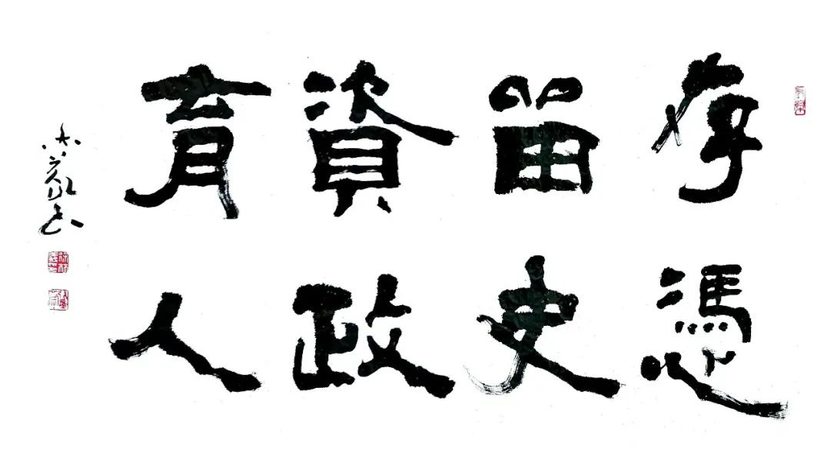 存憑
留史
資政
育人